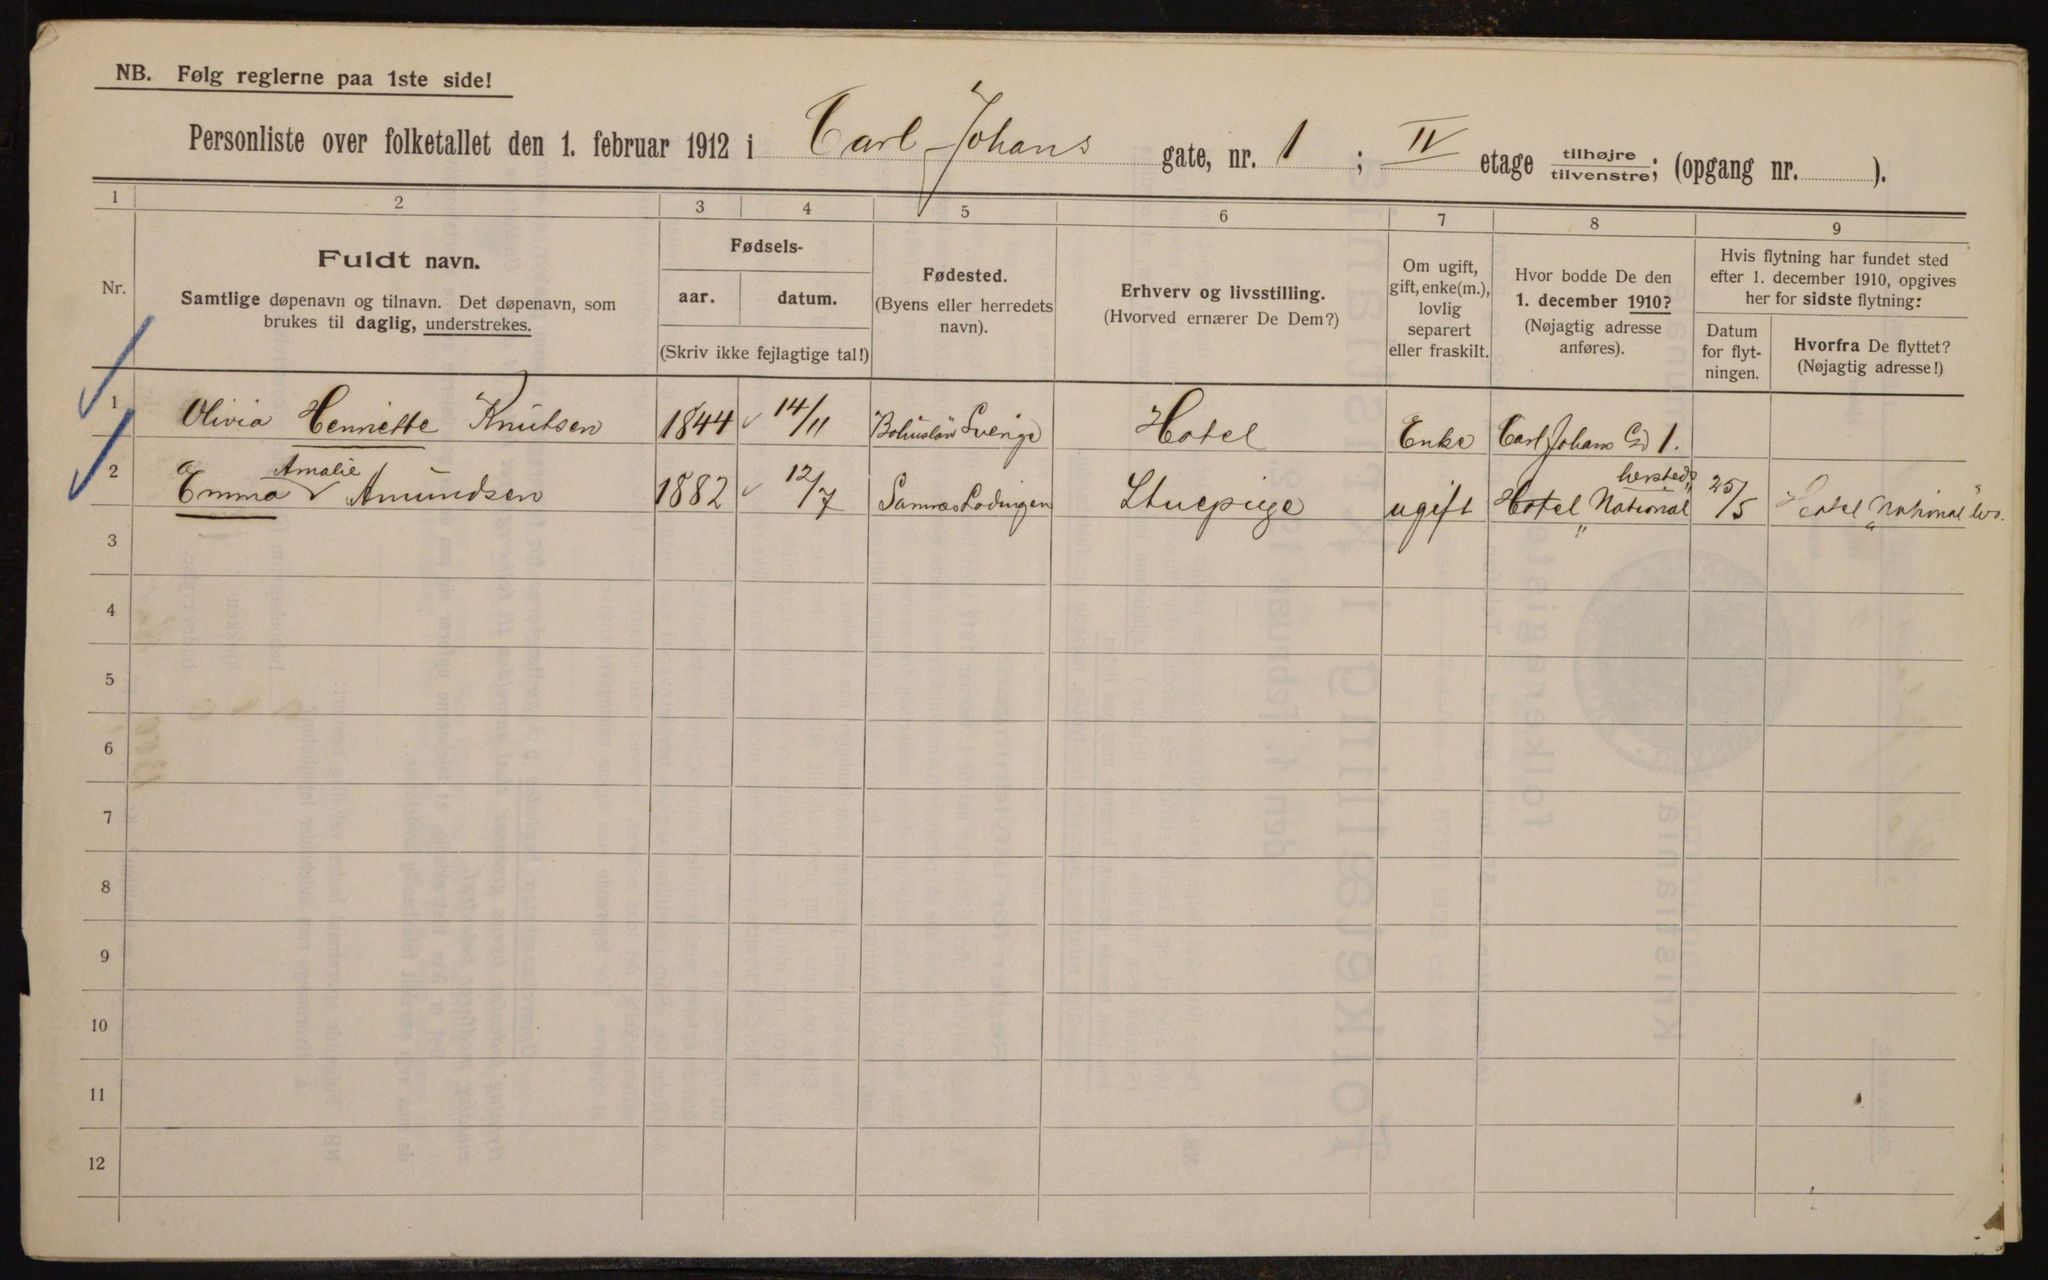 NB. Følg reglerne paa 1ste side!
Personliste over folketallet den 1. februar 1912 i Carl Johans gate, nr. 1 ; IV etage tilhøjre tilvenstre; (opgang nr. ).
1 2 3 4 5 6 7 8 9
Nr.
Fuldt navn.
Samtlige døpenavn og tilnavn. Det døpenavn, som
brukes til daglig, understrekes.
Fødsels-
aar. datum.
(Skriv ikke fejlagtige tal!)
Fødested.
(Byens eller herredets
navn).
Erhverv og livsstilling.
(Hvorved ernærer De Dem?)
Om ugift,
gift, enke(m.),
lovlig
separert
eller fraskilt.
Hvor bodde De den
1. december 1910?
(Nøjagtig adresse
anføres).
Hvis flytning har fundet sted
efter 1. december 1910, opgives
her for sidste flytning:
Datum
for flyt-
ningen.
Hvorfra De flyttet?
(Nøjagtig adresse!)
1 Olivia Henriette Knutsen 1844 14/11 Bohuslän Sverige Hotel Enke Carl Johans Gd 1.
2 Emma Amalie Amundsen 1882 12/7 Lødingen Stuepige ugift Hotel "National" hersteds 25/5 Hotel "National"
3
4
5
6
7
8
9
10
11
12